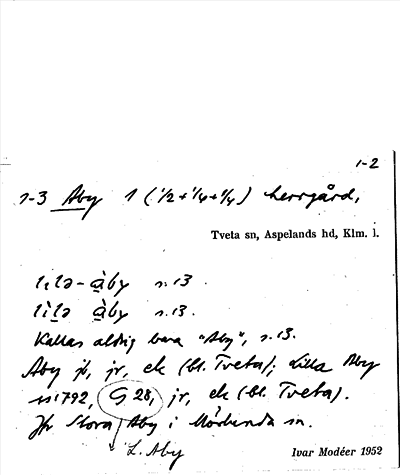 1-2
1-3 Aby 1 (1/2+1/4+1/4) herrgård,
Tveta sn, Aspelands hd, Klm. l.
lιlə-àby s. 13.
lìlə àby s. 13.
Kallas aldrig bara "Aby", s. 13.
Aby jb, jr, ek (bl. Tveta); Lilla Aby
1792, G 28, jr, ek (bl. Tveta).
Jfr Stora Aby i Mörlunda sn.
L. Aby
Ivar Modéer 1952